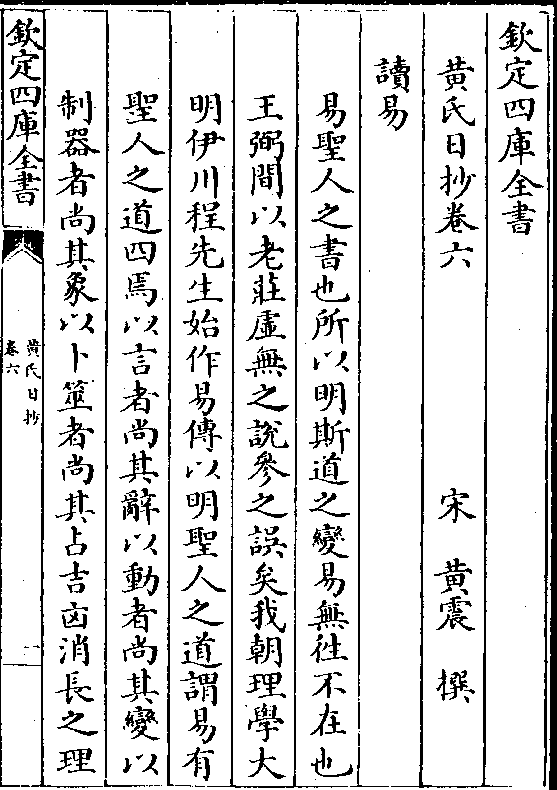 欽定四庫全書
黃氏日抄卷六
宋 黃震 撰
讀易
易聖人之書也所以明斯道之變易無徃不在也
王弼間以老莊虛無之說參之誤矣我朝理學大
明伊川程先生始作易傳以明聖人之道謂易有
聖人之道四焉以言者尚其辭以動者尚其變以
制器者尚其象以卜筮者尚其占吉凶消長之理
欽定四庫全書
黃氏日抄
卷六
一